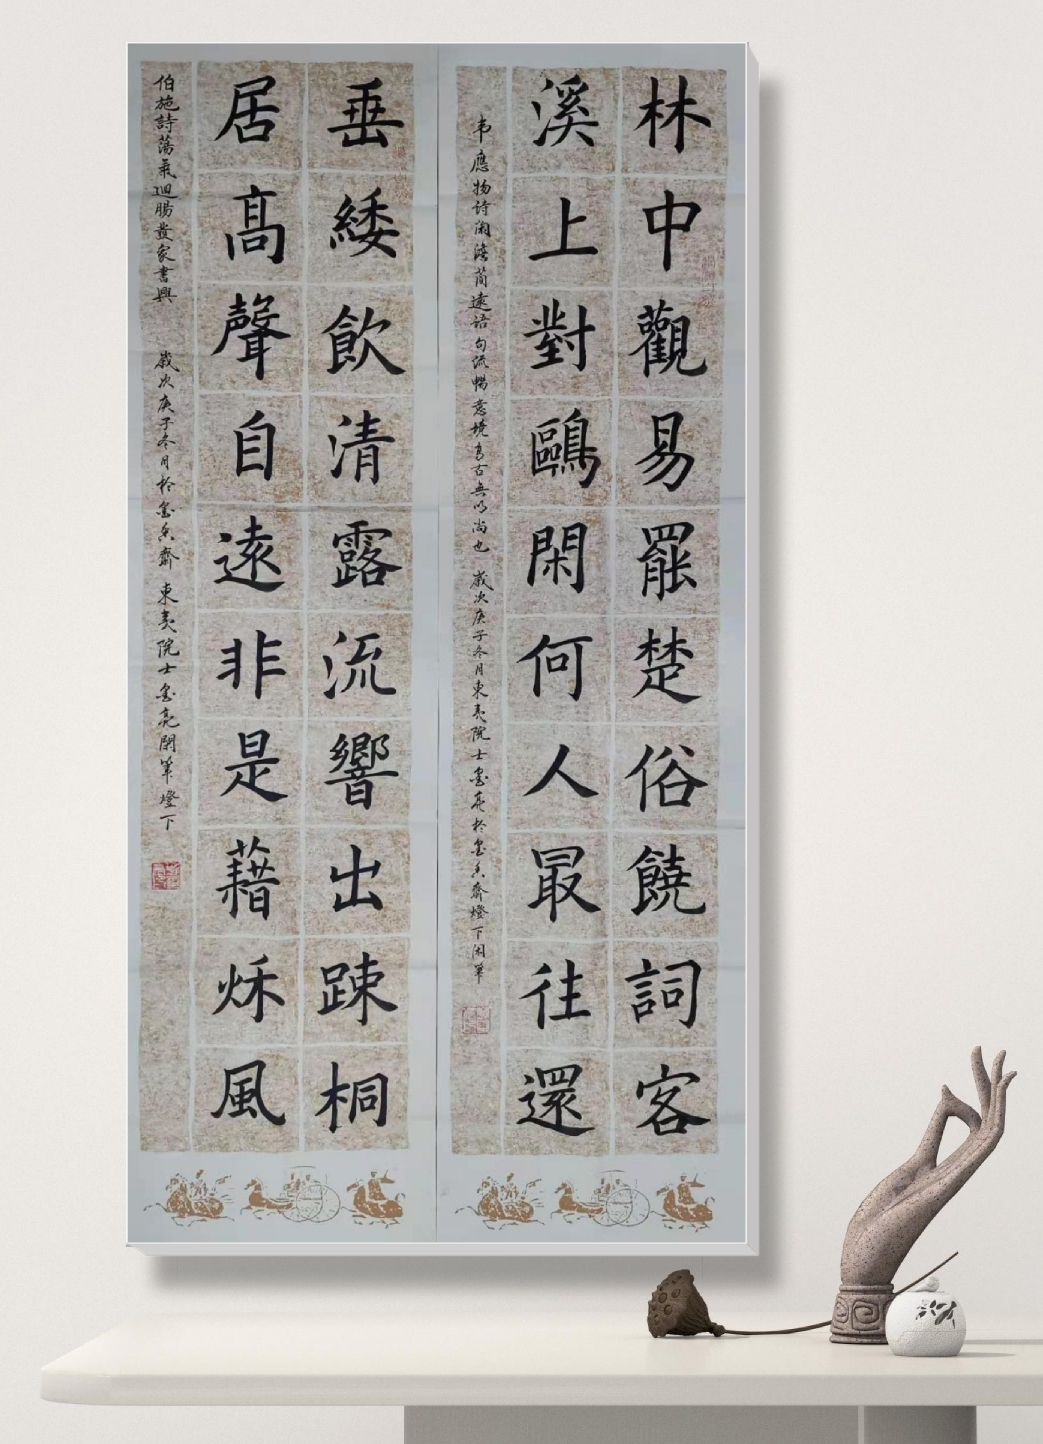 林中觀易罷楚俗饒詞客
溪上對鷗閑何人最往還
韦應物詩闲澹蕳遠語句流暢意境高古無以尚也 歲次庚子冬月東夷院士金亮於金香齋燈下闲筆
垂緌飲清露流響出踈桐
居髙聲自遠非是藉秌風
伯施詩蕩氣迴腸發家書興 歲次庚子冬月於金香齋東夷院士金亮閑筆燈下